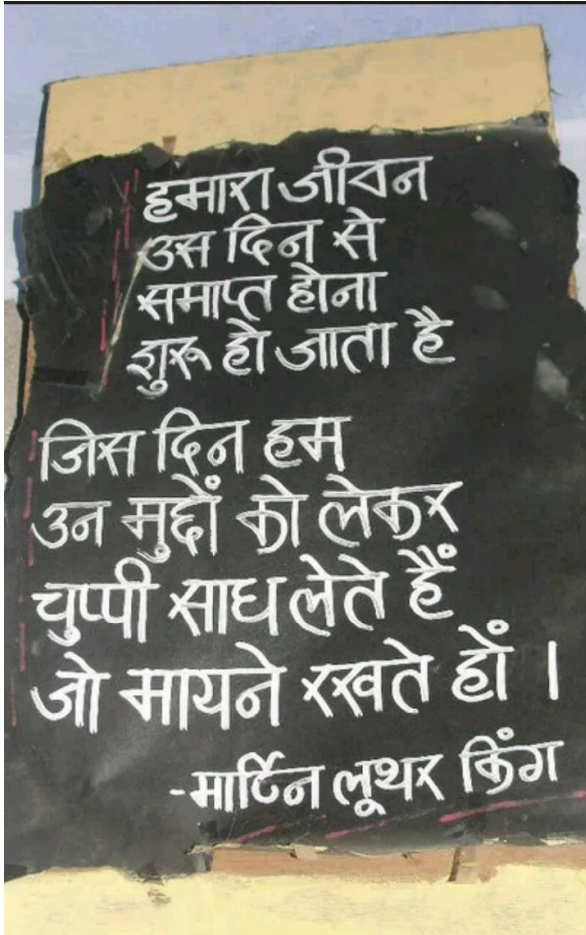 हमारा जीवन
उस दिन से
समाप्त होना
शुरू हो जाता है
जिस दिन हम
उन मुद्दों को लेकर
चुप्पी साध लेते हैं
जो मायने रखते हों ।
-मार्टिन लूथर किंग